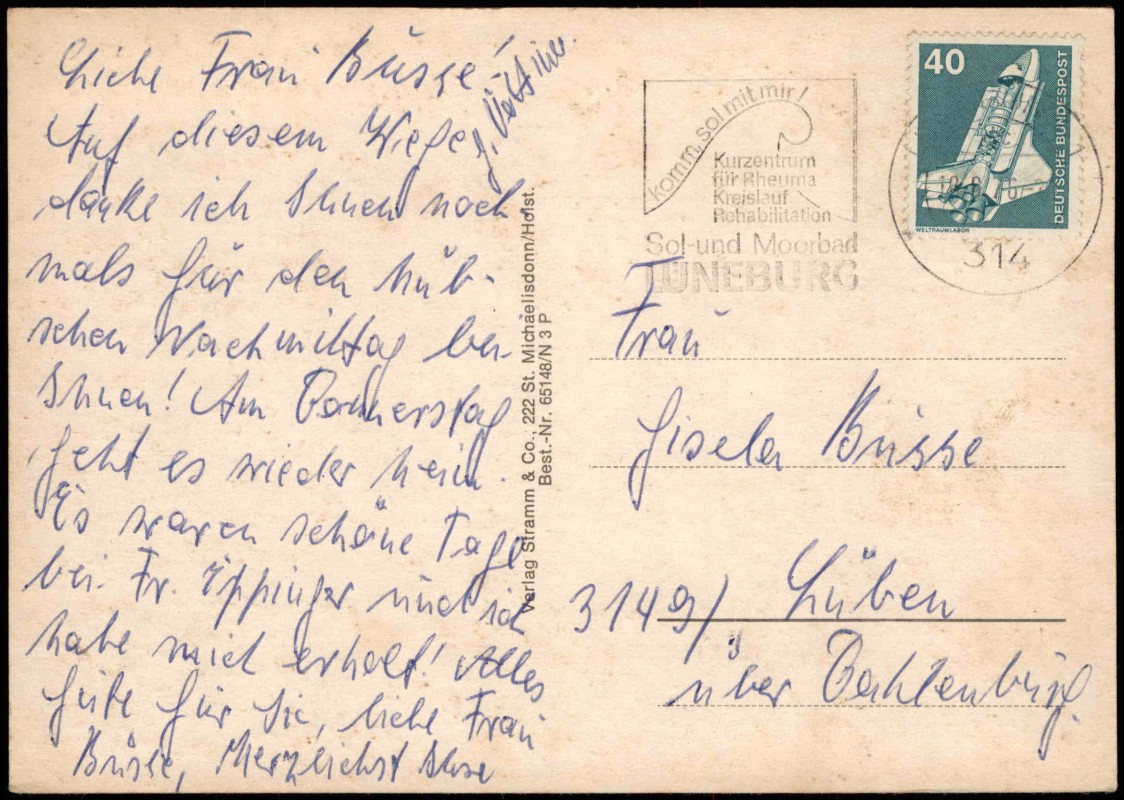 Liebe Frau Büsse!
Auf diesem Wege
danke ich Ihnen noch
mals für den hüb-
schen Nachmittag bei
Ihnen! Am Donnerstag
geht es wieder heim.
Es waren schöne Tage
bei Fr. Eppinger und ich
habe mich erholt! Alles
Gute für Sie, liebe Frau
Büsse, Herzlichst Ihre
Verlag Stramm & Co., 222 St. Michaelisdonn/Holst.
Best.-Nr. 65148/N 3 P
komm, sol mit mir!
Kurzentrum
für Rheuma
Kreislauf
Rehabilitation
Sol-und Moorbad
LÜNEBURG
40
DEUTSCHE BUNDESPOST
WELTRAUMLABOR
314
Frau
Gisela Büsse
3149/ Lüben
über Dahlenburg